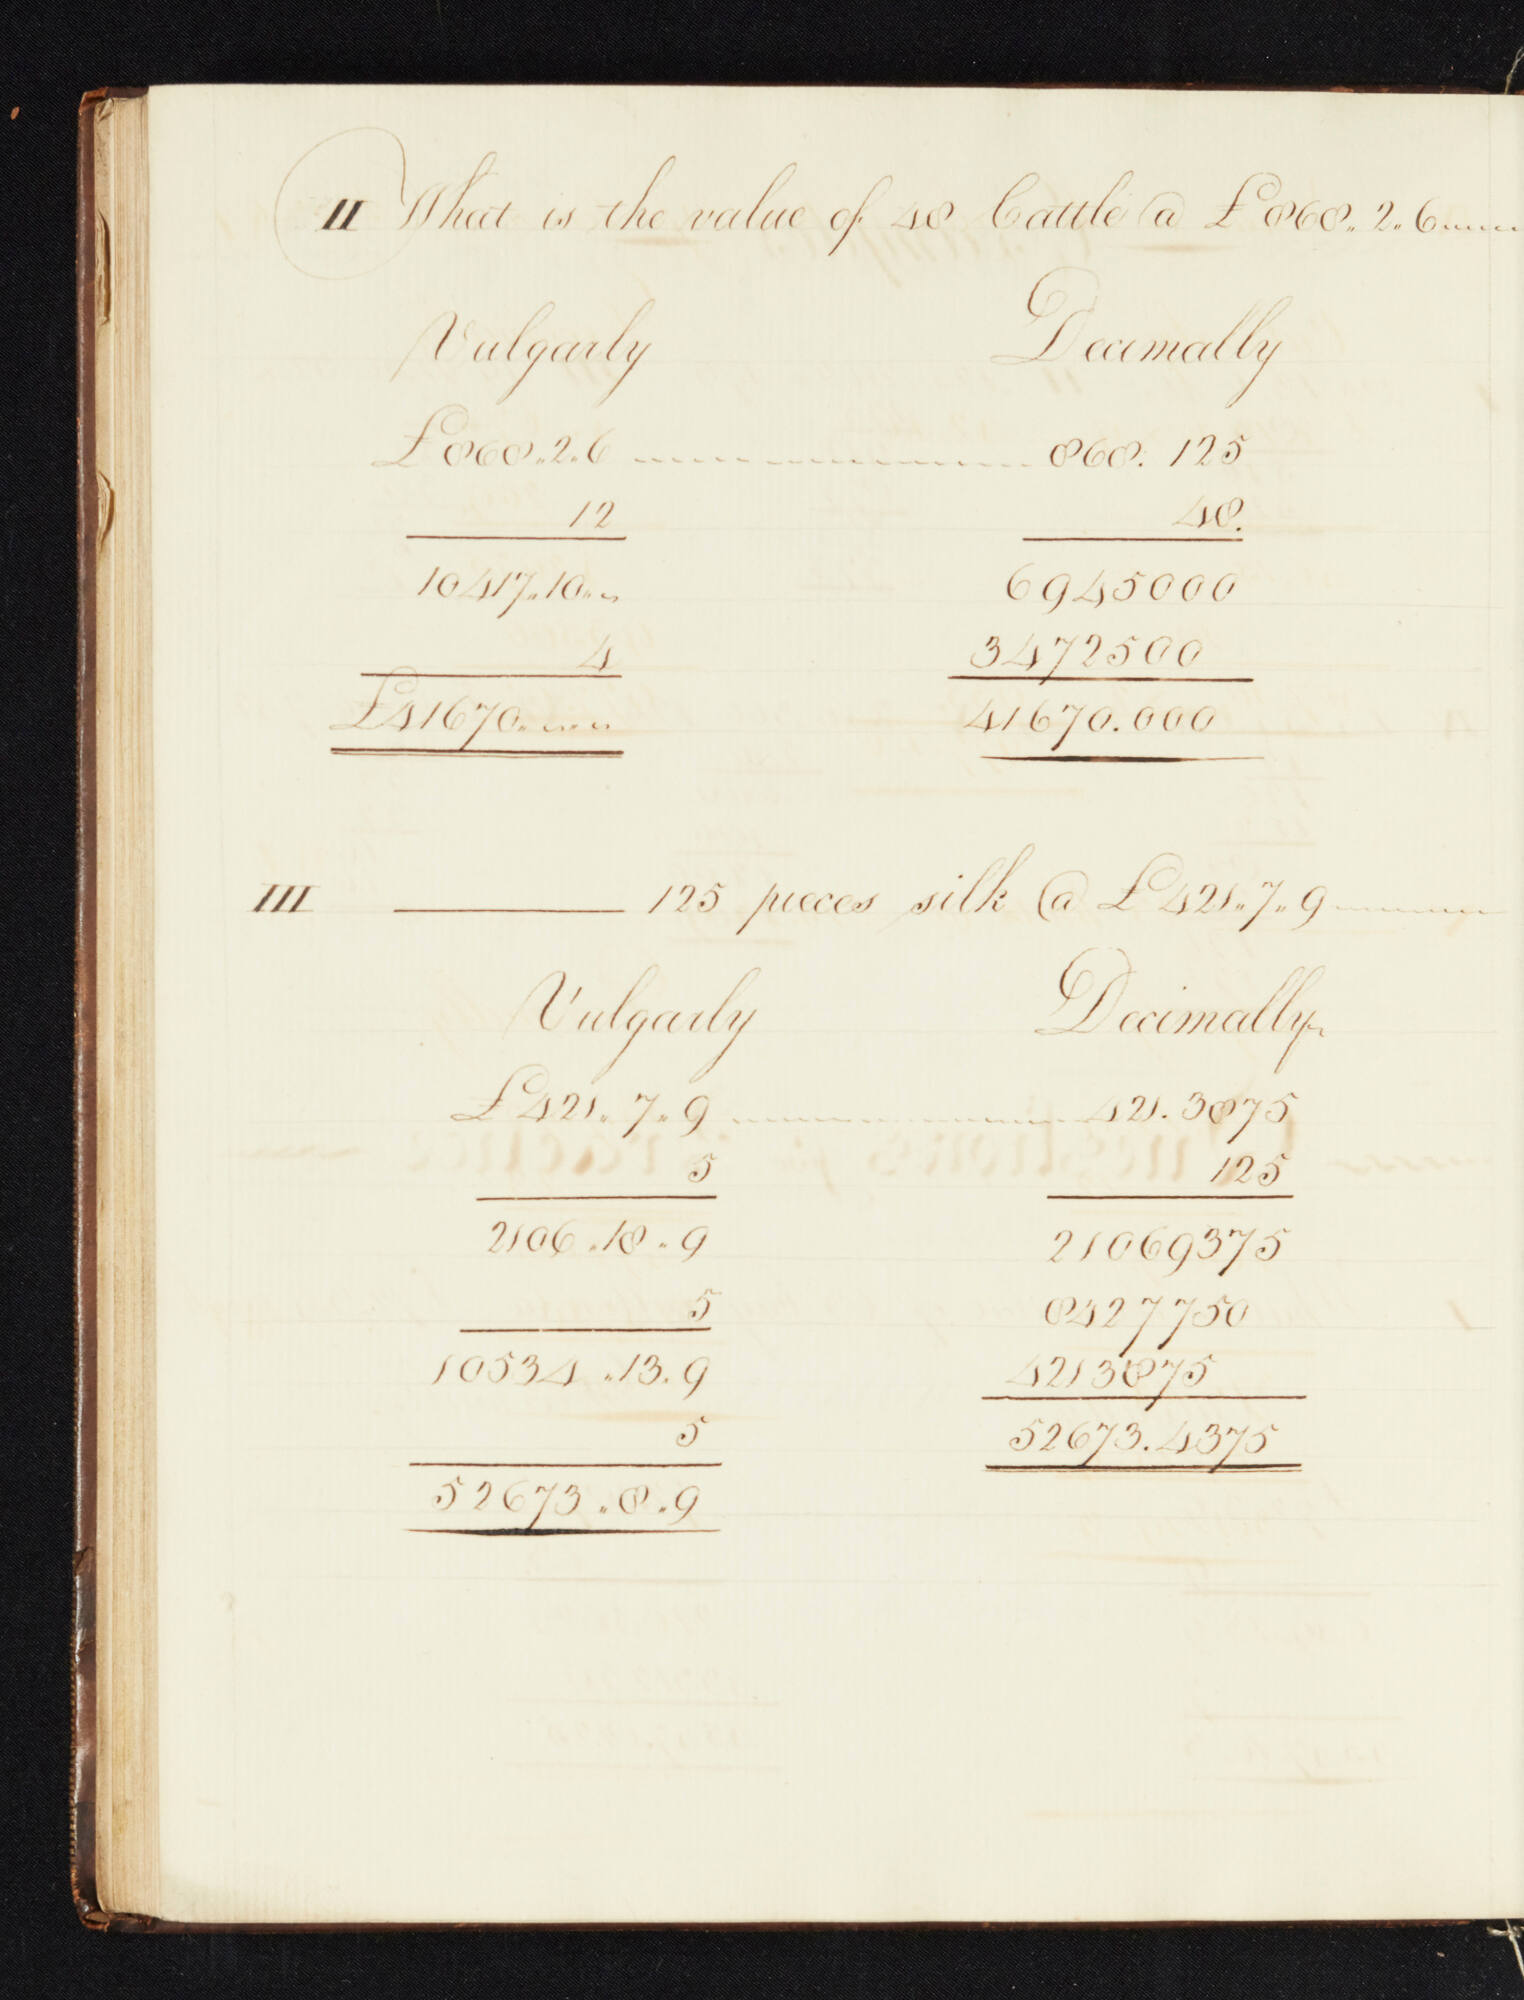 II What is the value of 48 Cattle @ £868..2..6
Vulgarly Decimally
£868..2..6 868.125
12 48.
10417..10..~ 6945000
4 3472500
£41670..~..~ 41670.000
III 125 pieces silk @ £421..7..9
Vulgarly Decimally
£421..7..9 421.3875
5 125
2106..18..9 21069375
5 8427750
10534..13..9 4213875
5 52673.4375
52673..8..9